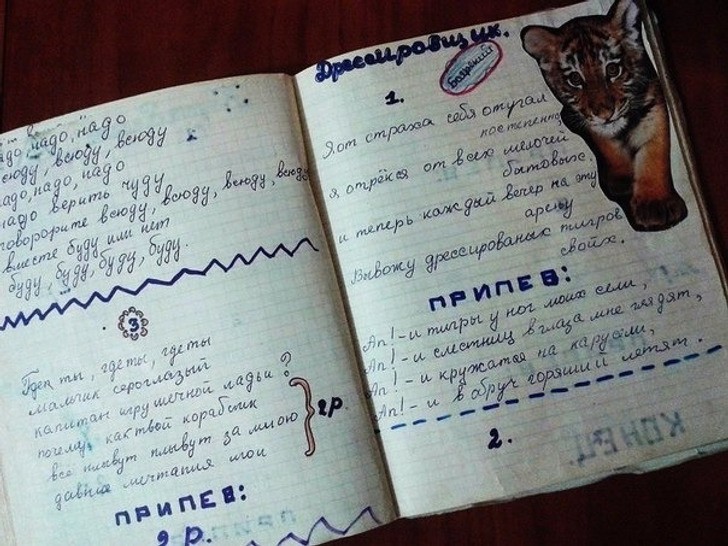 надо, надо
всюду, всюду
надо, надо, надо
надо верить чуду
говорорите всюду, всюду, всюду, всюду
вместе буду или нет
буду, буду, буду, буду.
3
Где ты, где ты, где ты
мальчик сероглазый
капитан игрушечной ладьи?
почему, как твой кораблик
все плывут за мною
давние мечтания мои
2р.
ПРИПЕВ:
2 р.
Дрессировщик.
Боярский
1.
Я от страха себя отучал
постепенно
я отрёкся от всех мелочей
бытовых.
и теперь каждый вечер на эту
арену
Вывожу дрессированых тигров
свойх.
ПРИПЕВ:
Ап! - и тигры у ног моих сели,
Ап! - и с лестниц в глаза мне глядят,
Ап! - и кружатся на карусели,
Ап! - и в обруч горящий летят.
2.
КОНЕЦ